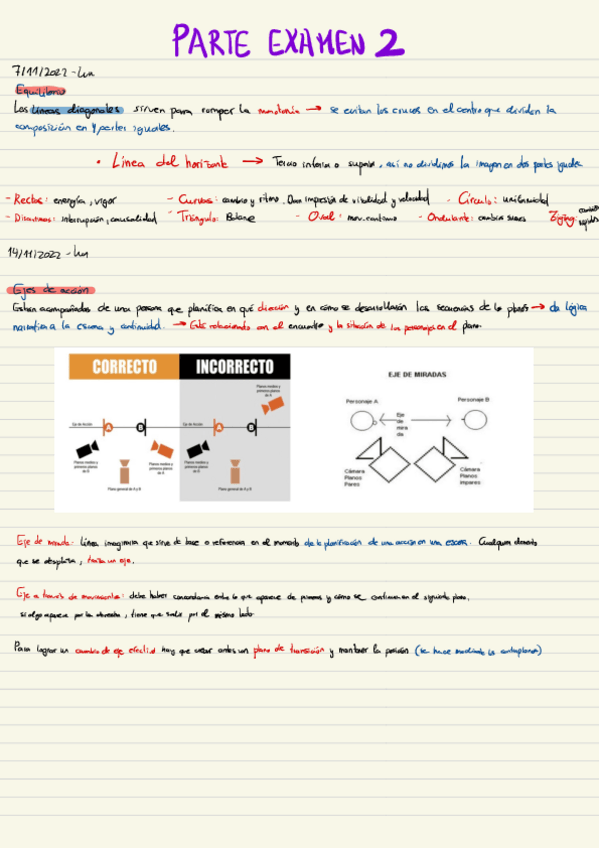 PARTE EXAMEN 2
7/11/2022 - Lun
Equilibrio
Las líneas diagonales sirven para romper la monotonía → se evitan los cruces en el centro que dividen la
composición en 4 partes iguales.
• Línea del horizonte → Tercio inferior o superior, así no dividimos la imagen en dos partes iguales
- Rectas: energía, vigor - Curvas: cambio y ritmo. Dan impresión de vitalidad y velocidad - Círculo: uniformidad
- Discontinuas: interrupción, casualidad - Triángulo: Balance - Oval: mov. continuo - Ondulante: cambios suaves Zigzag: cambios rápidos
14/11/2022 - Lun
Ejes de acción
Están acompañados de una persona que planifica en qué dirección y en cómo se desarrollarán las secuencias de los planos → da lógica
narrativa a la escena y continuidad. → Está relacionado con el encuadre y la situación de los personajes en el plano.
CORRECTO INCORRECTO
Planos medios y primeros planos de A
Eje de Acción A B Eje de Acción A B
Planos medios y primeros planos de B
Planos medios y primeros planos de A
Planos medios y primeros planos de B
Plano general de A y B
Plano general de A y B
EJE DE MIRADAS
Personaje A
Personaje B
Eje
de
mira
da
Cámara
Planos
Pares
Cámara
Planos
Impares
Eje de mirada: Línea imaginaria que sirve de base o referencia en el momento de la planificación de una acción en una escena. Cualquier elemento
que se desplaza, traza un eje.
Eje a través de movimientos: debe haber concordancia entre lo que aparece de personas y cómo se continua en el siguiente plano.
si algo aparece por la derecha, tiene que salir por el mismo lado
Para lograr un cambio de eje efectivo hay que crear antes un plano de transición y mantener la posición (se hace mediante los contraplanos)